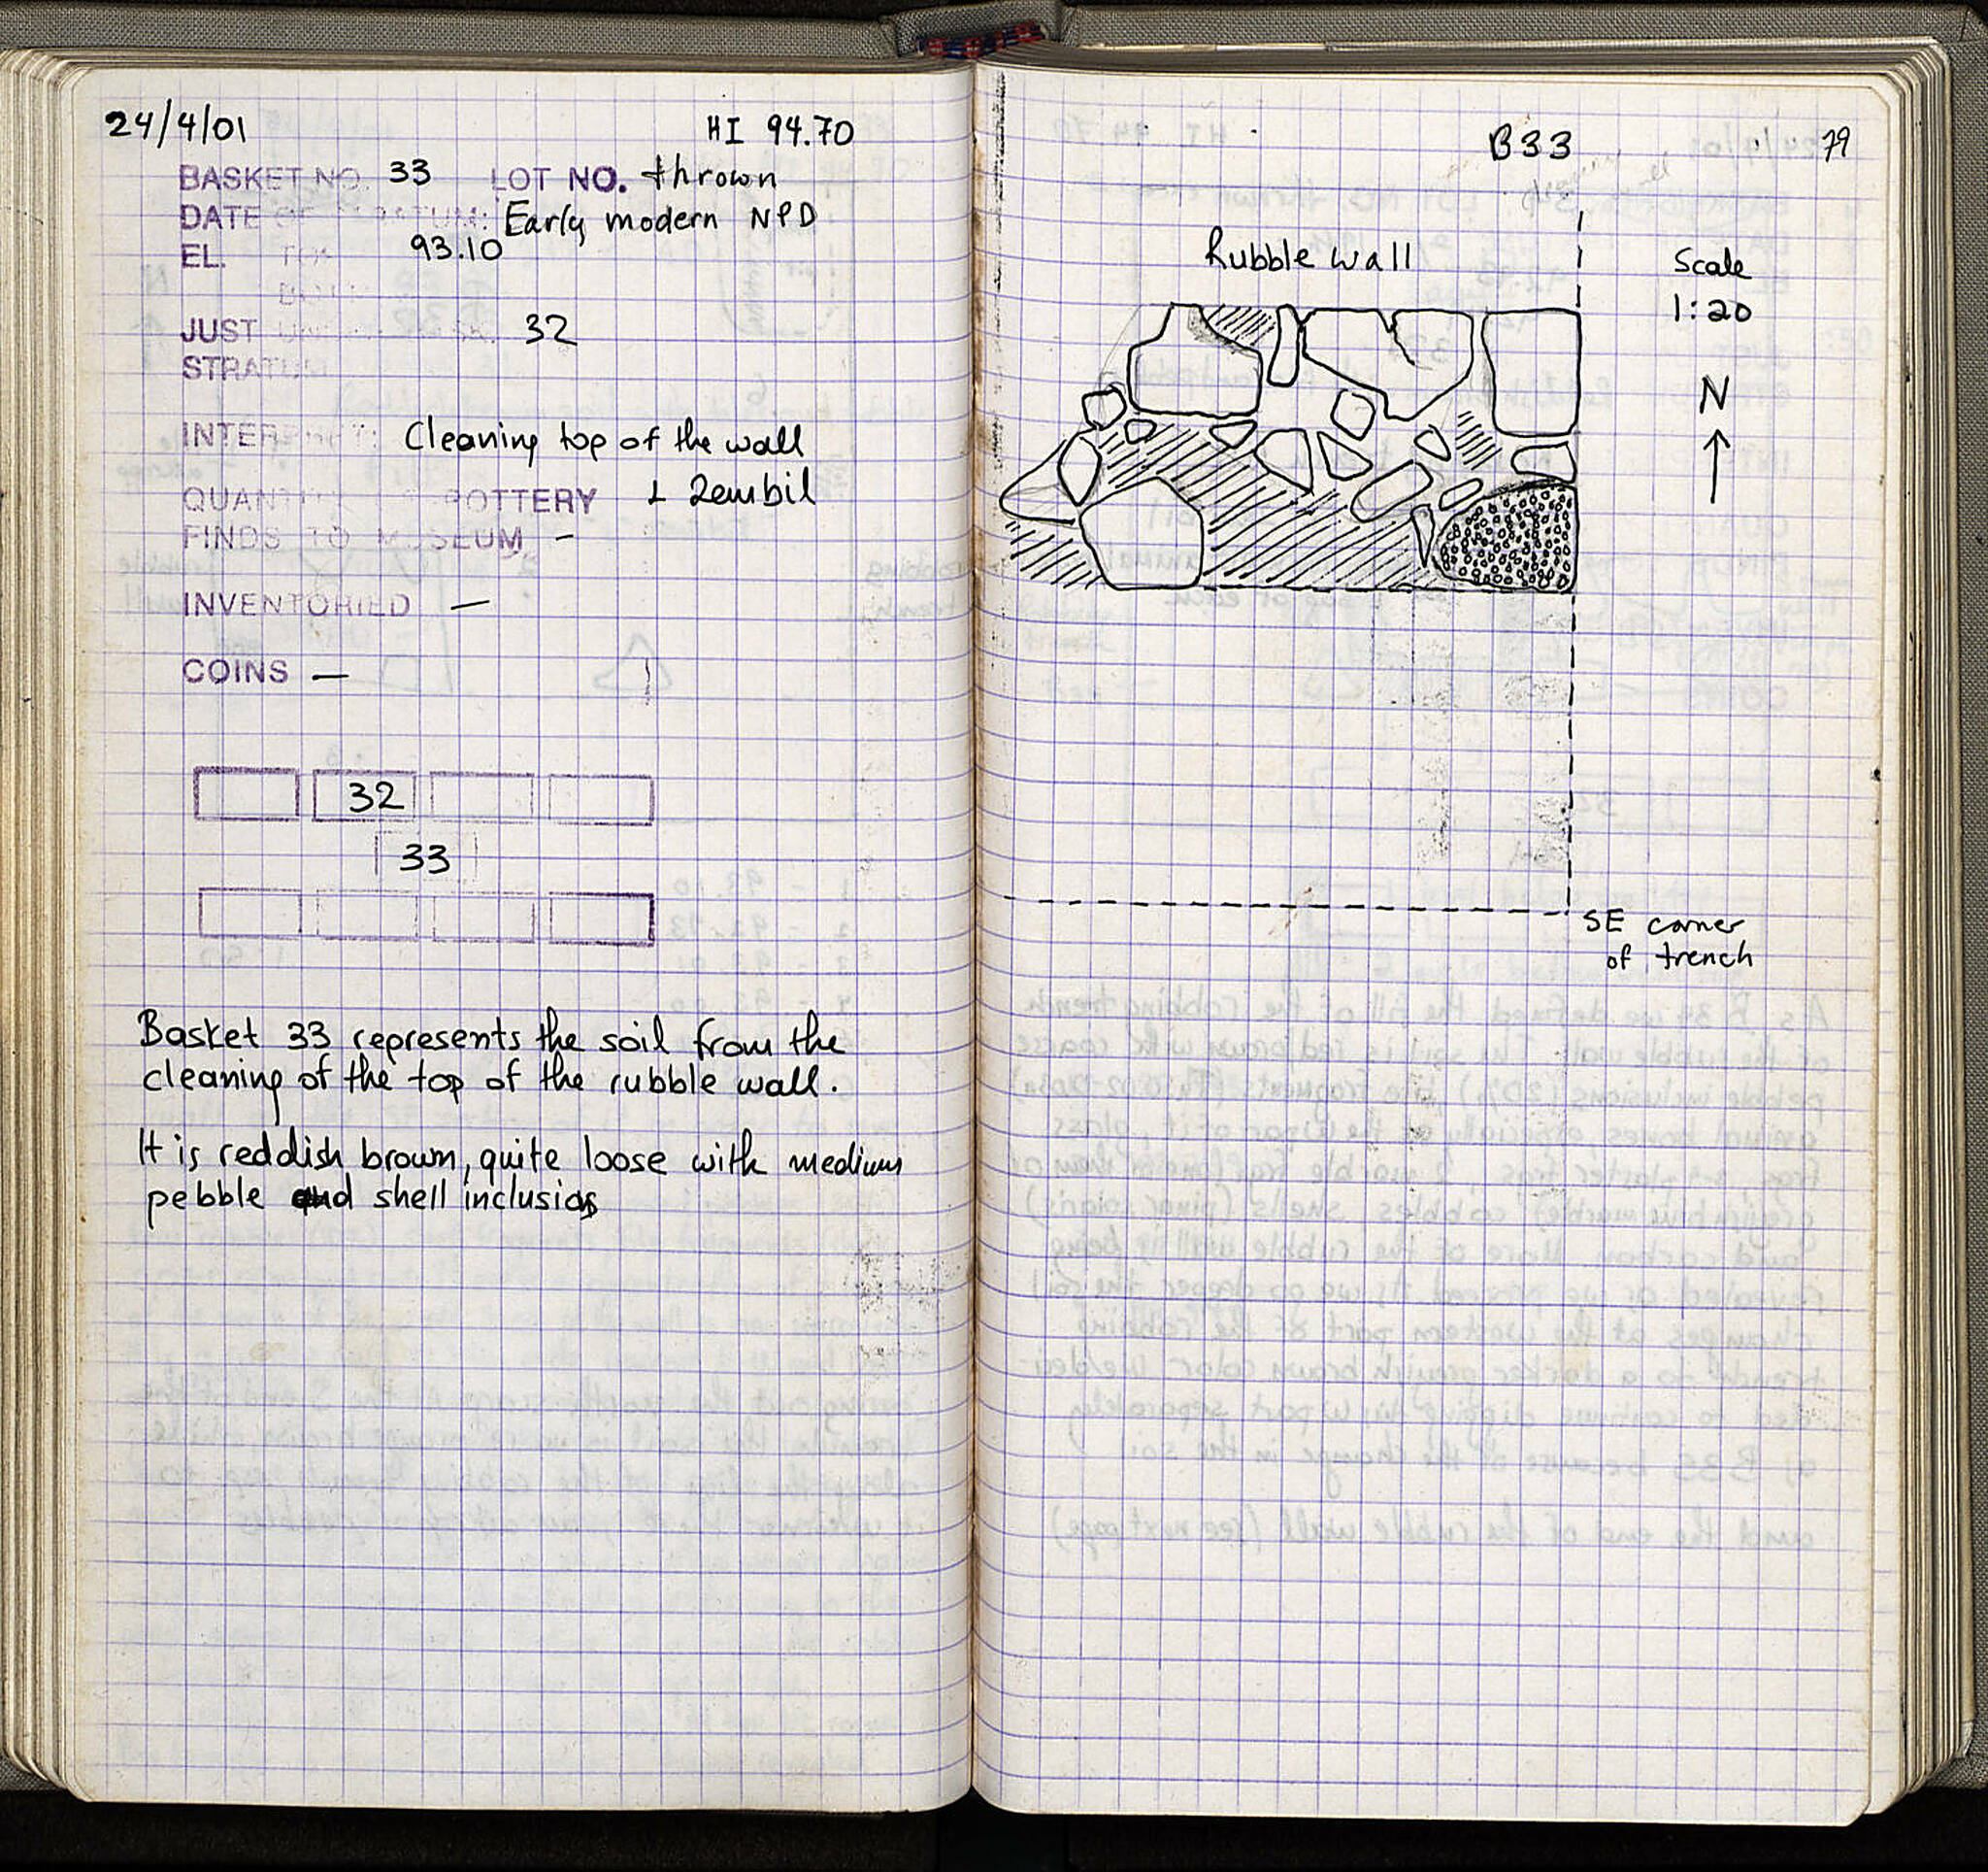 24/4/01 HI 94.70
BASKET NO. 33 LOT NO. thrown
DATE OF STRATUM: Early modern NPD
EL. TOP 93.10
JUST 32
STRATUM
INTERPRET: Cleaning top of the wall
QUANTITY POTTERY 1 zembil
FINDS TO MUSEUM –
INVENTORIED —
COINS —
32
33
Basket 33 represents the soil from the
cleaning of the top of the rubble wall.
It is reddish brown, quite loose with medium
pebble and shell inclusios
B33 79
Rubble wall
Scale
1:20
N
SE corner
of trench